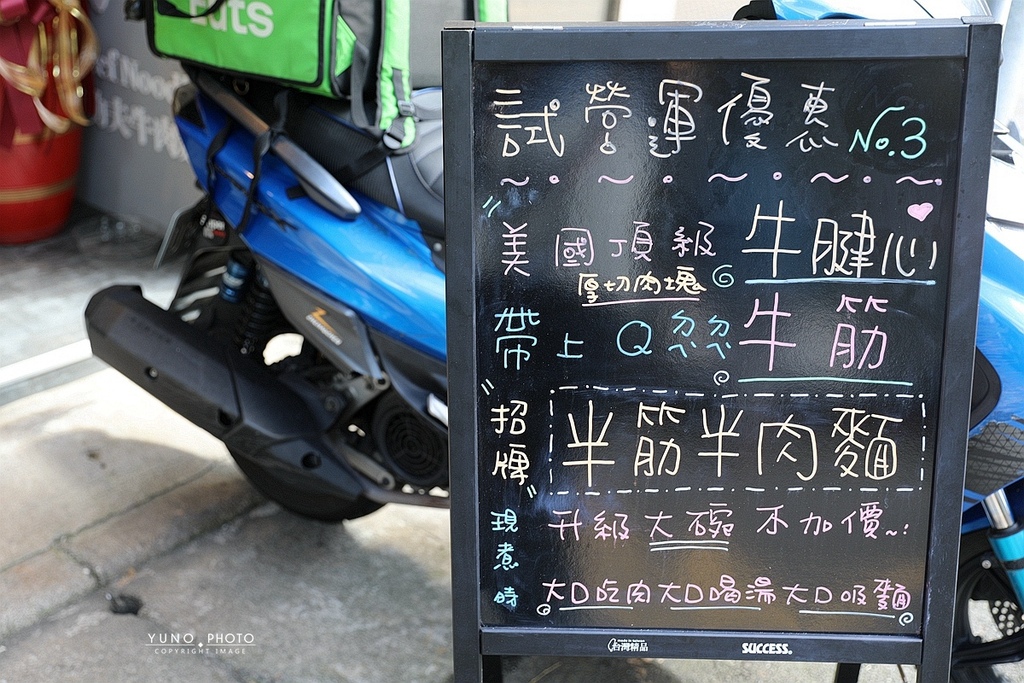 Eats
ef Nood
大牛肉
試營運優惠 No.3
美國頂級 牛腱心
厚切肉塊
帶上Q ㄉㄟㄉㄟ 牛筋
"招牌" 半筋半肉麵
升級大碗不加價~!
現煮時
大口吃肉大口喝湯大口吸麵
台灣精品
SUCCESS.
YUNO PHOTO
COPYRIGHT IMAGE